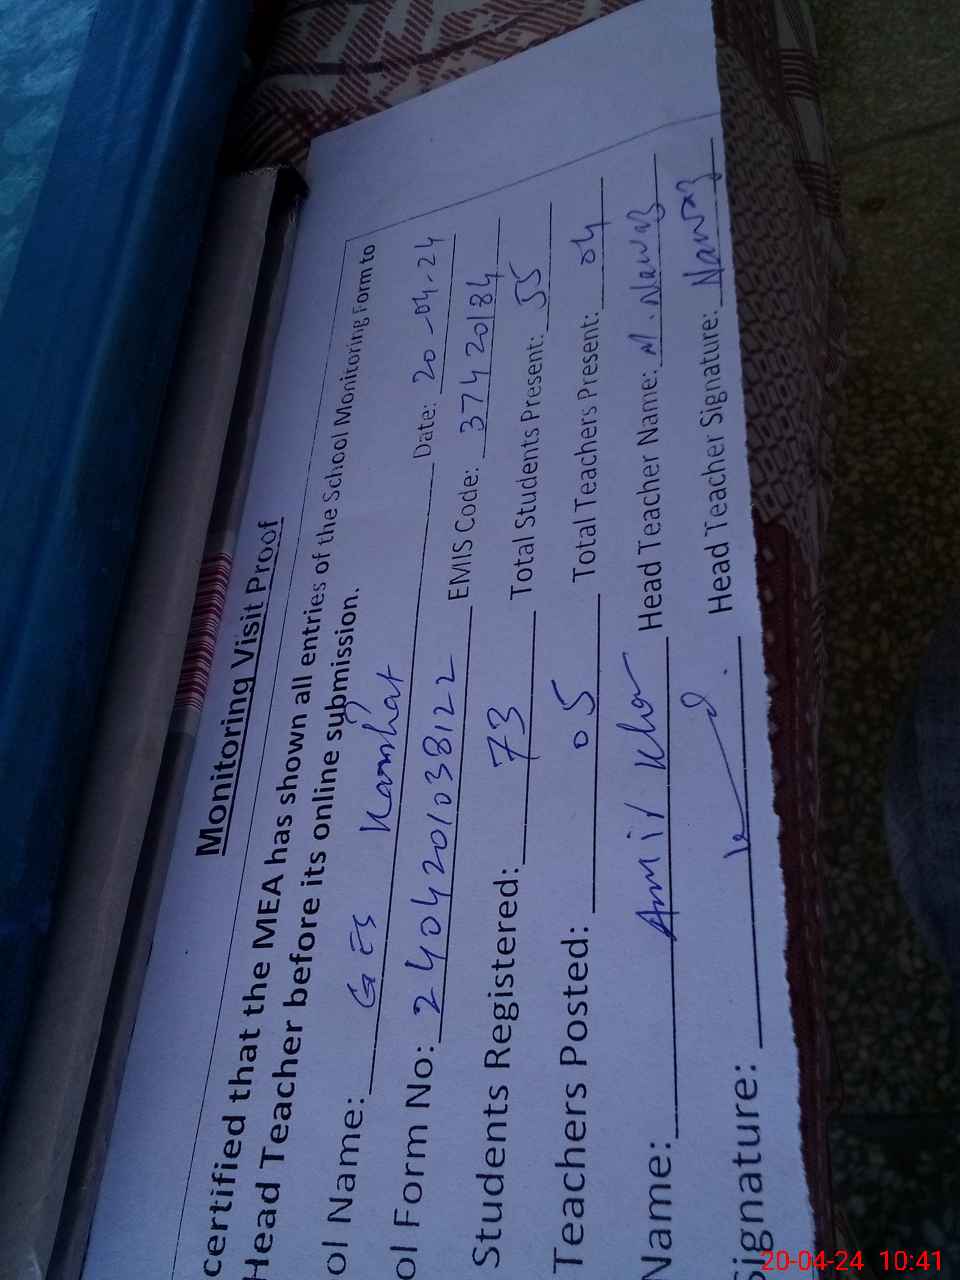 Monitoring Visit Proof
certified that the MEA has shown all entries of the School Monitoring Form to
Head Teacher before its online submission.
ol Name: GES Date: 20-04-24
ol Form No: 2404201038122 EMIS Code: 37420184
Students Registered: 73 Total Students Present: 55
Teachers Posted: 05 Total Teachers Present: 04
Name: Amir Khan Head Teacher Name: M. Nawaz
Signature: Head Teacher Signature: Nawaz
20-04-24 10:41